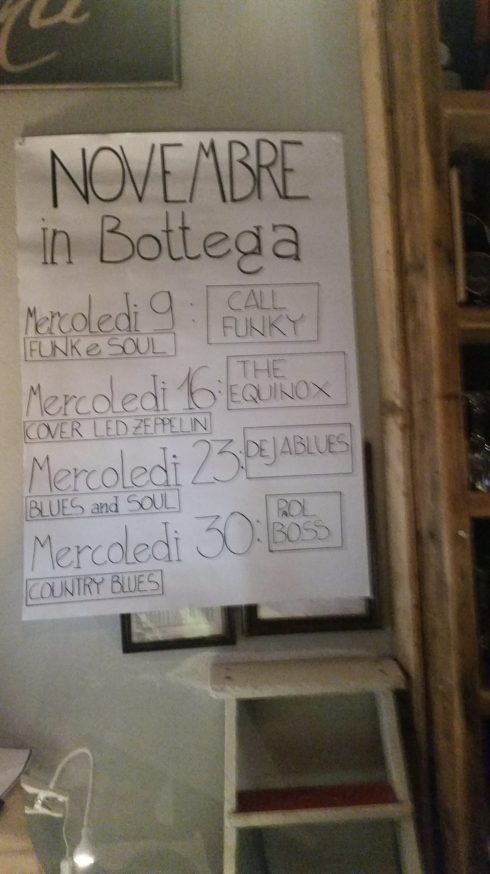 NOVEMBRE
in Bottega
Mercoledi 9 : CALL FUNKY
FUNK e SOUL
Mercoledi 16: THE EQUINOX
COVER LED ZEPPELIN
Mercoledi 23: DEJABLUES
BLUES and SOUL
Mercoledi 30: BOSS
COUNTRY BLUES